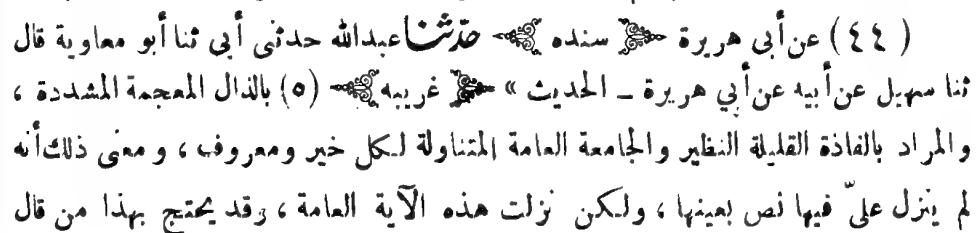 ( ٤٤ ) عن أبي هريرة ﴿ سنده ﴾ حدّثنا عبدالله حدثنى أبى ثنا أبو معاوية قال
ثنا سهيل عن أبيه عن أبي هريرة ــ الحديث » ﴿ غريبه ﴾ (٥) بالذال المعجمة المشددة ،
والمراد بالفاذة القليلة النظير والجامعة العامة المتناولة لكل خير ومعروف ، ومعنى ذلك أنه
لم ينزل علىّ فيها نص بعينها ، ولكن نزلت هذه الآية العامة ، وقد يحتج بهذا من قال